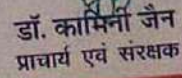 डॉ. कामिनी जैन
प्राचार्य एवं संरक्षक